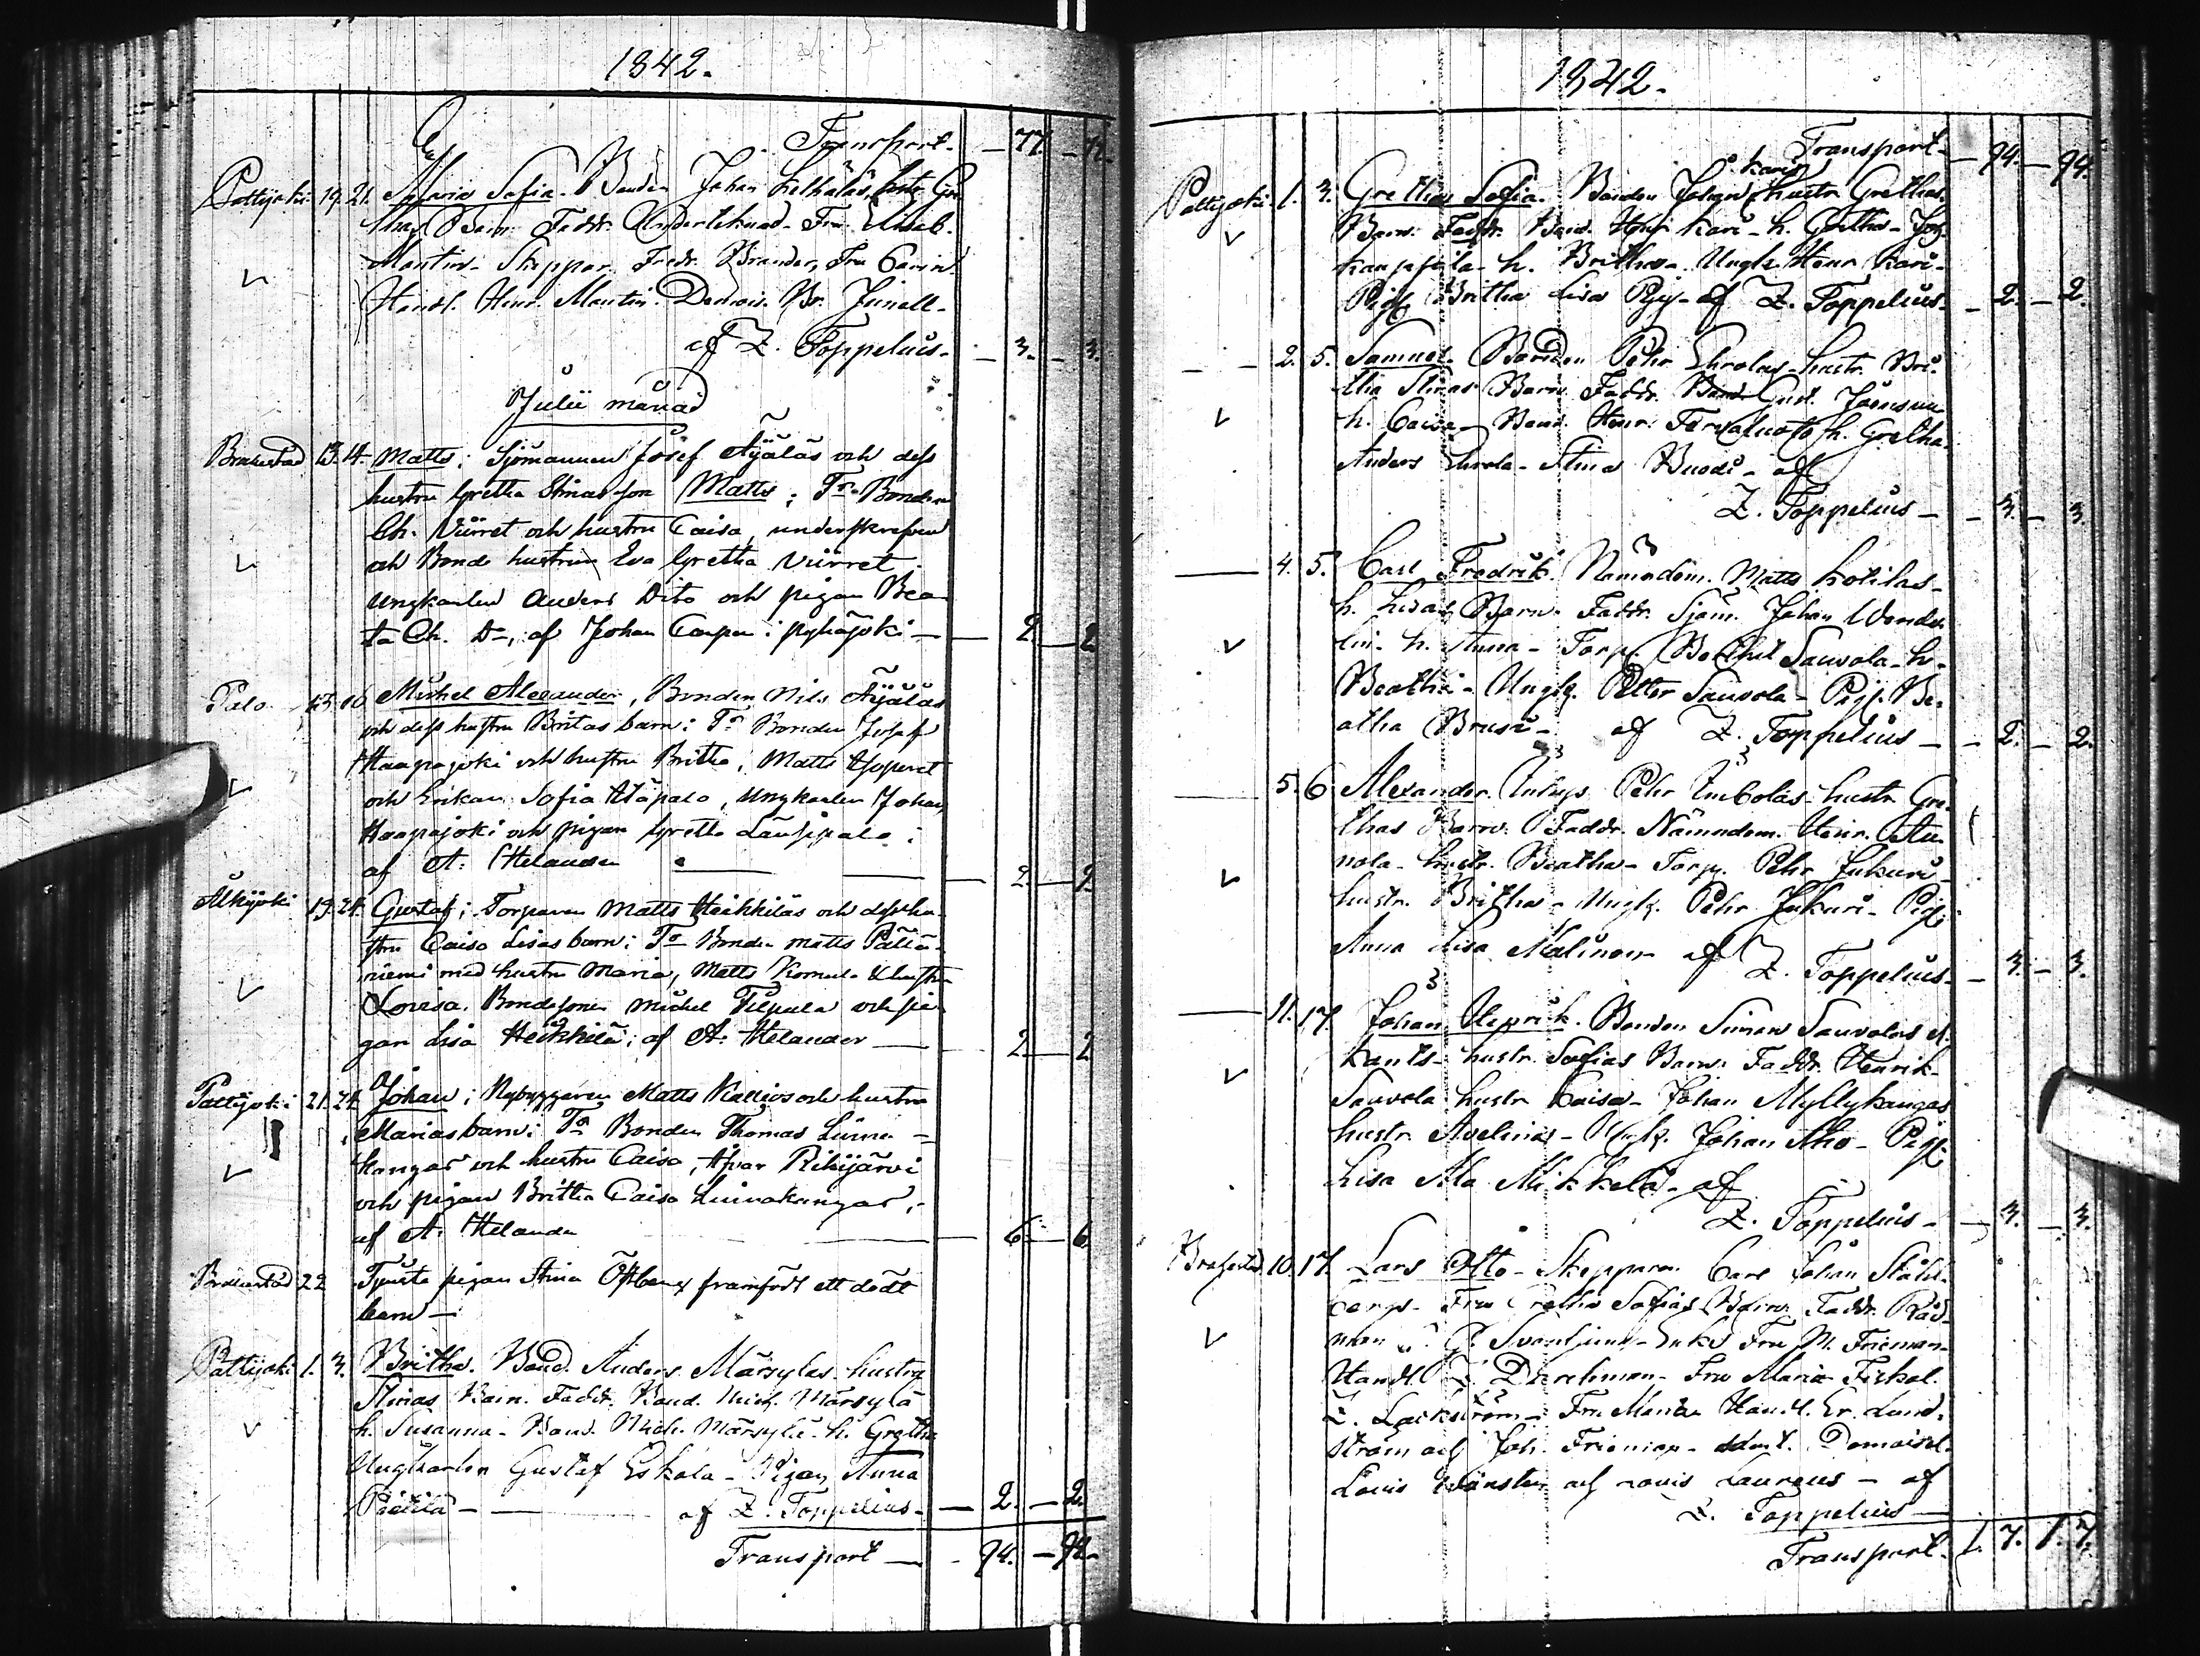 1842.
Transport. — 77. —
Pattijoki 19. 21. Maria Sofia. Bonden Johan hustr. Gre
thas Barn. Faddr. Underteknad. Fru Elisab.
Martin. Skeppar Fredr. Brander, Fru Carin.
Handl. Henr. Martin. Br. Junell.
af Z. Toppelius. — 3. — 3.
Julii månad
Brahestad 13. 14. Matts; Sjömannen Josef Äÿäläs och dess
hustru Gretha Stinas son Matts; Fr. Bonden
Ch. Viirret och hustru Caisa, underskrefven
och Bonde hustrun Eva Gretha Viirret
ungkarlen Anders Dito och pigan Bea
ta Ch. D—, af Johan Casper i Pyhäjoki — 2 — 2
Palo 15. 16 Michel Alexander, Bonden Nils Äÿäläs
och dess hustru Britas barn; Fr. Bonden Josef
Haapajoki och hustru Britha, Matts
och Enkan Sofia Alapalo, Ungkarlen Johan
Haapajoki och pigan Gretha Länsipalo;
af A. Helander — 2. — 2.
Olkijoki 19. 24. Gustaf; Torparen Matts Heikkiläs och dess hu-
stru Caisa Lisas barn; Fr. Bonden Matts Pättä-
niemi med hustru Maria, Matts & hustru
Lovisa. Bondesonen Michel Filpula och pi
gan Lisa Heikkilä; af A. Helander — 2 — 2
Pattijoki 21. 24. Johan; Nybyggaren Matts Kallios och hustru
Marias barn; Fr. Bonden Thomas Linna-
kangas och hustru Caisa, Ifvar Rihijärvi
och pigan Britha Caisa Linnakangas;
af A. Helander — 6 — 6
Brahestad 22 Tjenste pigan Stina framfödt ett dödt
barn —
Pattijoki 1. 3. Britha. Bond. Anders Märsyläs hustru
Stinas Barn. Faddr. Bond. Mich. Märsylä
h. Susanna. Bond. Mich. Märsylä. h. Gretha
Ungkarlen Gustaf Eskola. Pigan Anna
Pietilä — af Z. Toppelius. — 2. — 2.
Transport — 94. — 94.
1842.
Transport. — 94. — 94.
Karis
Pattijoki. 1. 3. Gretha Sofia. Bonden Johan hustr. Grethas
Barn. Faddr. Bond. Henr. Kari. h. Gretha. Joh.
Kauppila. h. Britha. Ungk. Henr. Kari.
Pig. Britha Lisa af Z. Toppelius. — 2. — 2.
— 2. 5. Samuel. Bonden Pehr hustr. Bri-
tha Stinas Barn. Faddr. Bond. Gust.
h. Caisa. Bond. Henr. h. Gretha.
Anders Stina af
Z. Toppelius — 3. — 3.
— 4. 5. Carl Fredrik. Nämndem. Matts Kotilas.
h. Lisas Barn. Faddr. Sjöm. Johan Wende-
lin. h. Anna. Torp. Berthel Sauvola. h.
Beatha. Ungk. Petter Sauvola. Pig. Be-
atha Brusi. af Z. Toppelius — 2. — 2.
— 5. 6 Alexander. Pehr hustr. Gre-
thas Barn. Faddr. Nämndem. Henr. An
nola. hustr. Beatha. Torp. Pehr Jukuri
hustr. Britha. Ungk. Pehr Jukuri. Pig.
Anna Lisa Malinen. af Z. Toppelius. — 3. — 3.
— 11. 17. Johan Henrik. Bonden Simon Sauvolas
hustr. Sofias Barn. Faddr. Henrik
Sauvola hustr. Caisa. Johan Myllykangas
hustr. Avelina. Ungk. Johan Aho. Pig.
Lisa Ala Mikkela. af
Z. Toppelius. — 3. — 3.
Brahestad 10. 17. Lars Otto. Skepparen Carl Johan Ståhl-
bergs. Fru Gretha Sofias Barn. Faddr. Råd-
man Enke Fru M. Frieman.
Handl. Fru Maria Fiskal.
Z. Lackström. Fru Maria Handl. Er. Lund-
ström och Joh. Frieman. Demoisel.
Lovis och Lovis Laurens — af
Z. Toppelius —
Transport. 1. 7. 1. 7.